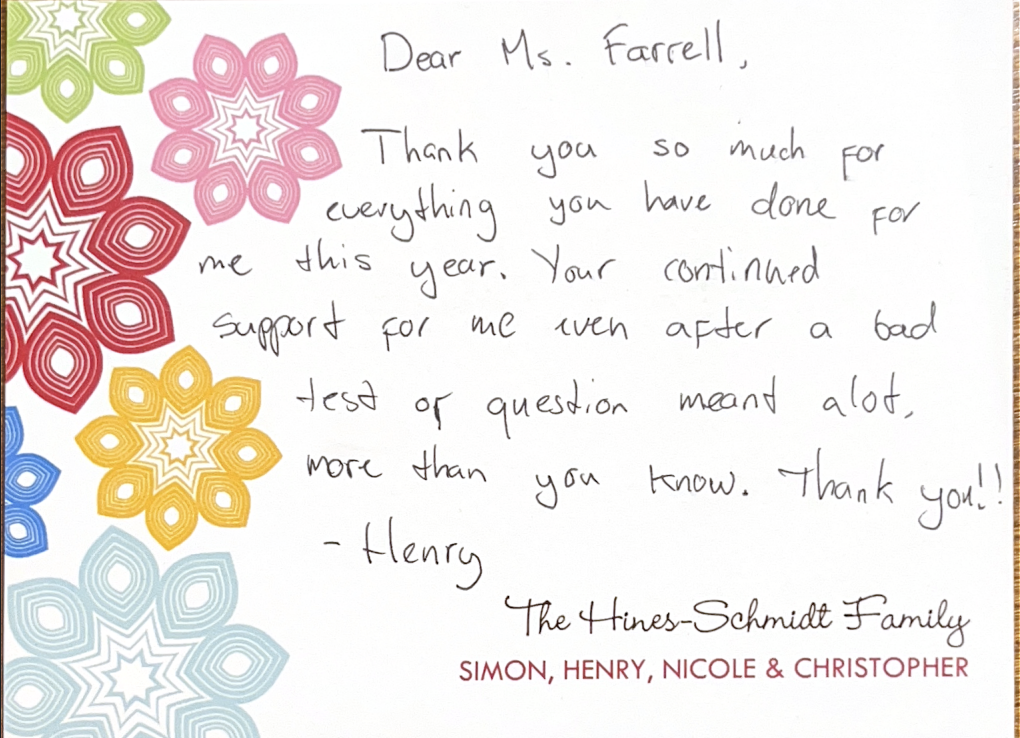 Dear Ms. Farrell,
Thank you so much for
everything you have done for
me this year. Your continued
support for me even after a bad
test or question meant alot,
more than you know. Thank you!!
- Henry
The Hines-Schmidt Family
SIMON, HENRY, NICOLE & CHRISTOPHER